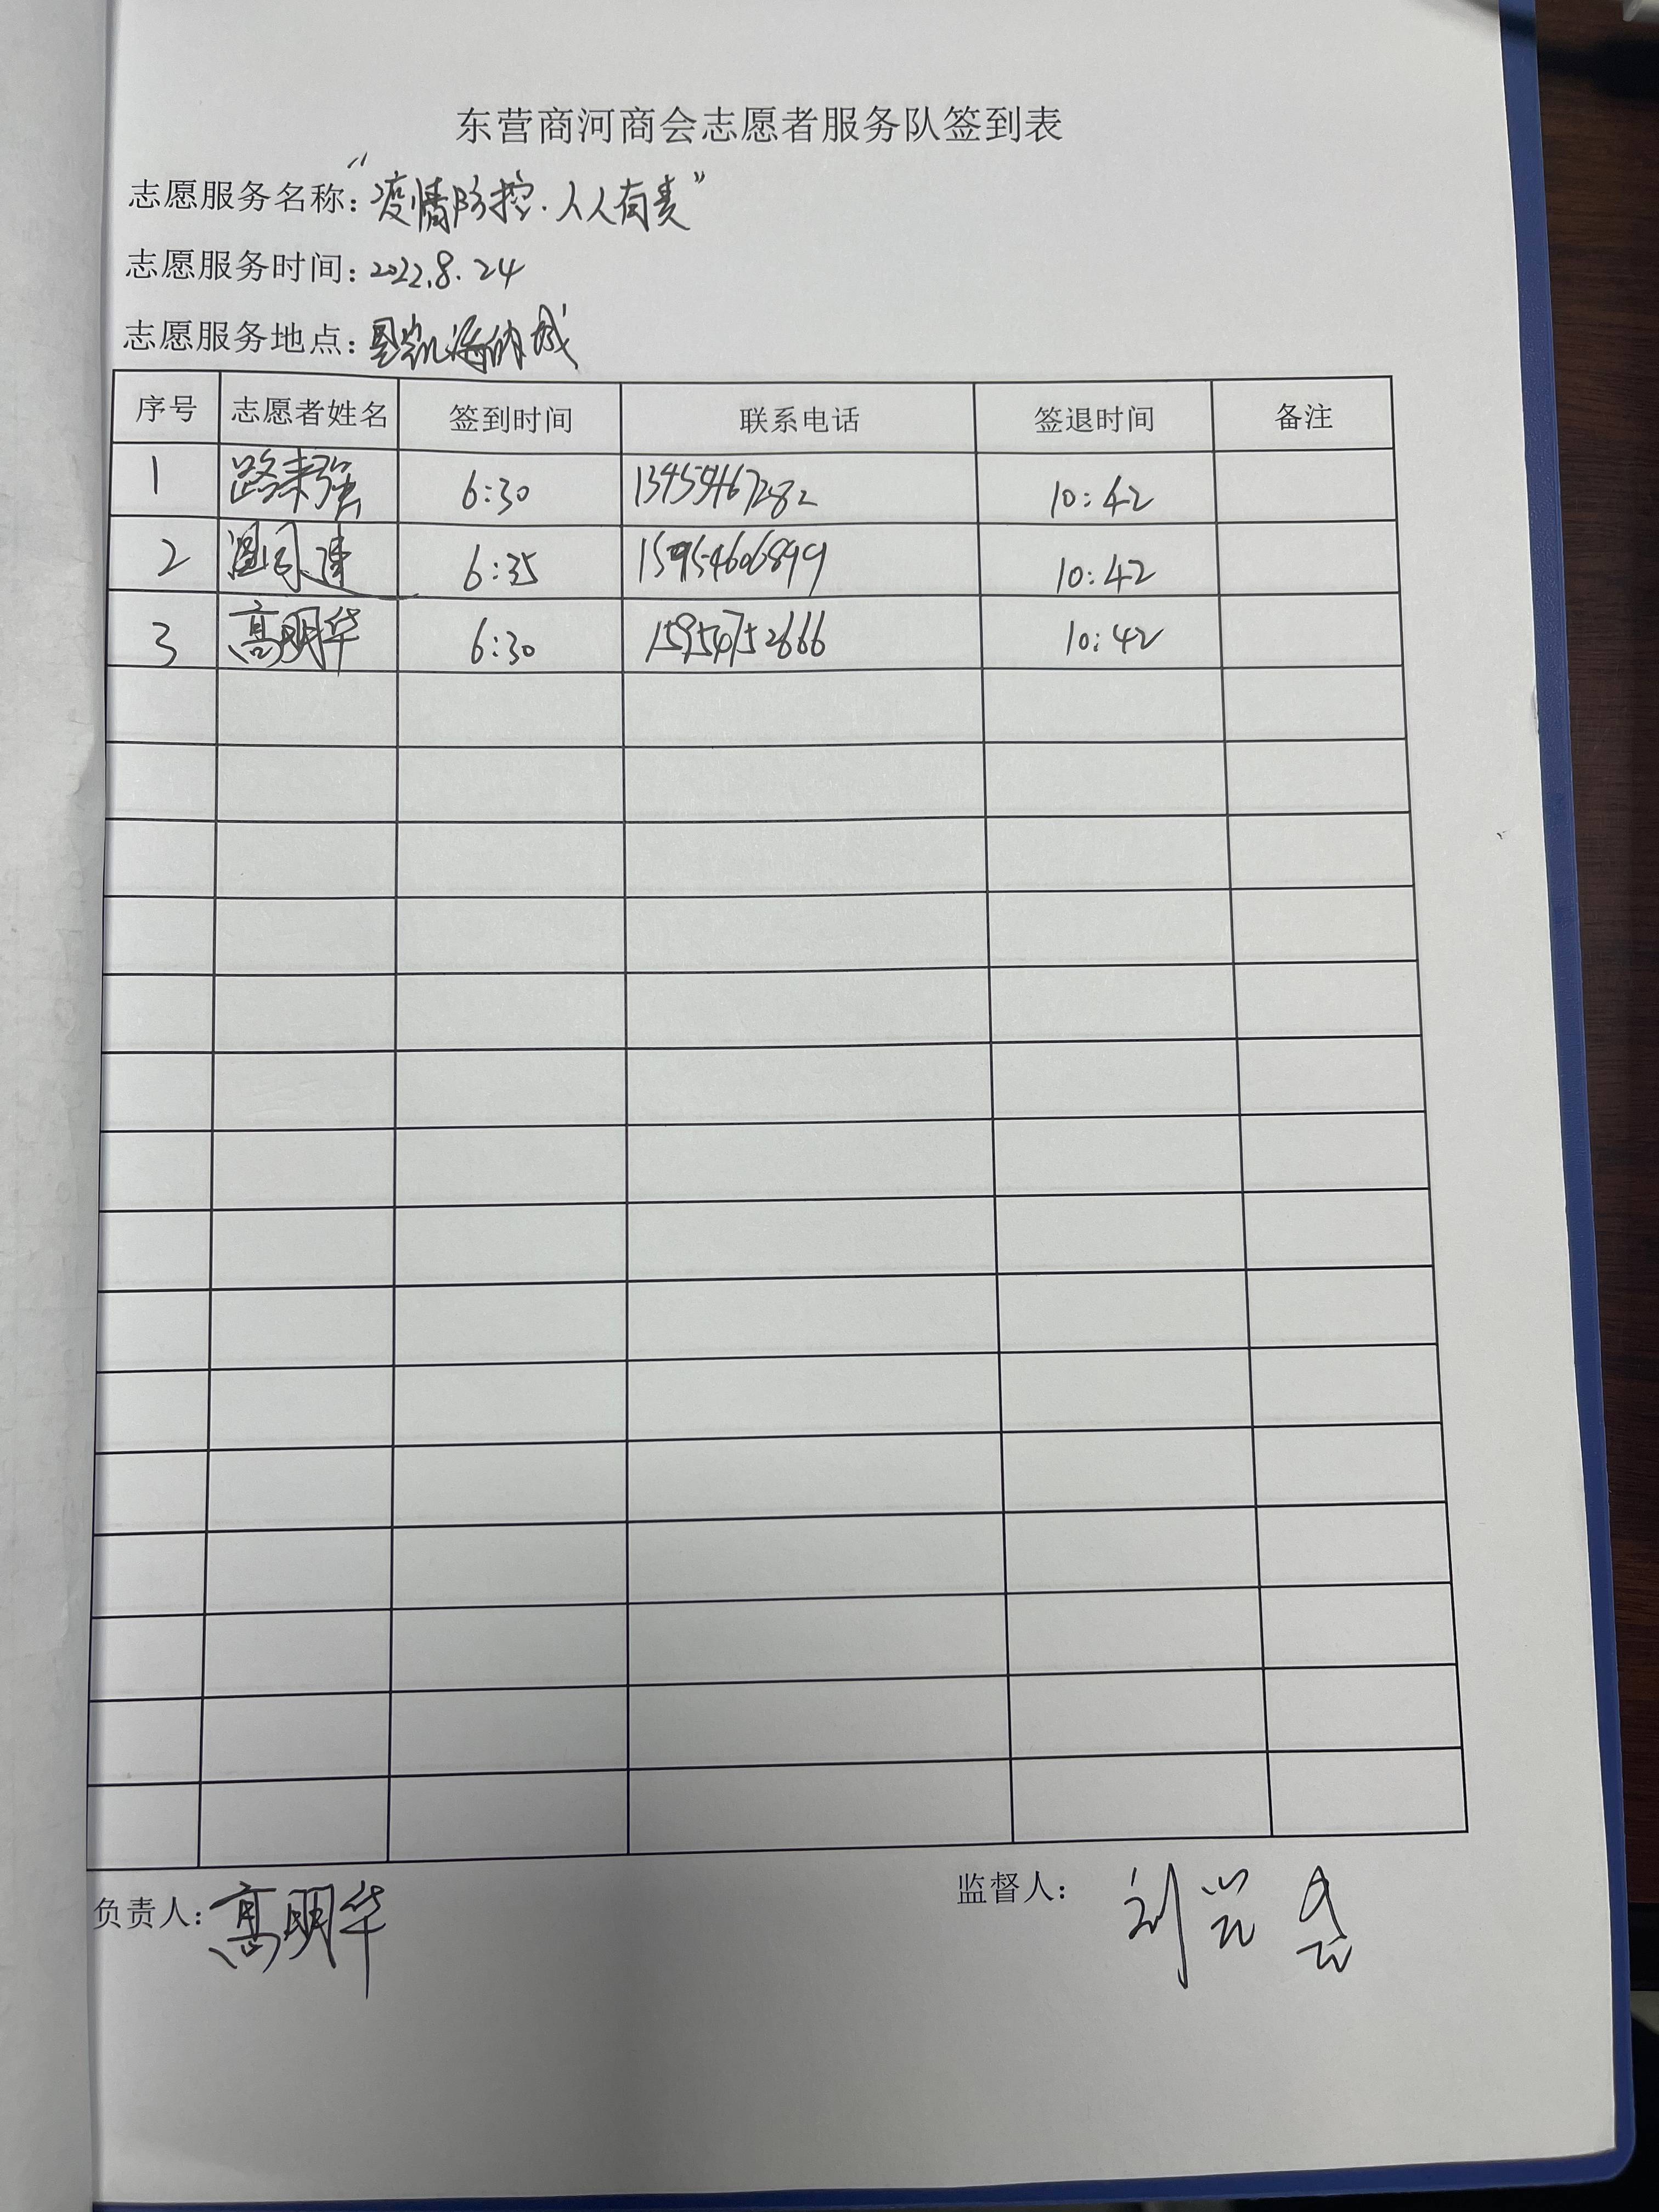 东营商河商会志愿者服务队签到表
志愿服务名称：“疫情防控·人人有责”
志愿服务时间：2022.8.24
志愿服务地点：凯海纳城
序号 志愿者姓名 签到时间 联系电话 签退时间 备注
1 路来强 6:30 13455467282 10:42
2 温同建 6:35 15954606899 10:42
3 高明华 6:30 15954752666 10:42
负责人：高明华 监督人：刘兴会